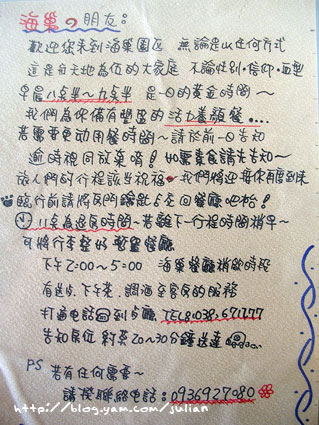 海巢の朋友:
歡迎您來到海巢園區 無論是以任何方式
這是有天地為伍的大家庭 不論性別·信仰·血型
早晨八點半~九點半 是一日的黃金時間~
我們為你備有豐富的活力養顏餐....
若需要更動用餐時間~請於前一日告知
逾時視同放棄唷! 如需素食請先告知~
旅人們的行程該當祝福 我們將迎接你再度到來
臨行前請將房門鑰匙 回餐廳吧枱!
八點為退房時間~若離下一行程時間稍早~
可將行李整好 寄置餐廳
下午2:00~5:00 海巢餐廳稍歇時段
有送 下午茶.調酒至客房的服務
打通電話回到占廳 TEL8:038.671777
告知房位 約莫20~30分鐘送達
PS 若有任何需要~
請撥聯絡電話:0936927080
http://blog.yam.com/julian